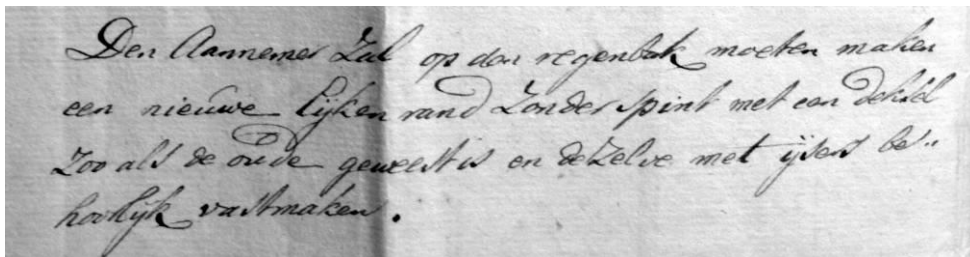 Den Aannemer zal op den regenbak moeten maken
een nieuwe Eijken rand zonder spint met een deksel
zoo als de oude geweest is en dezelve met ijser be„
hoorlijk vastmaken.